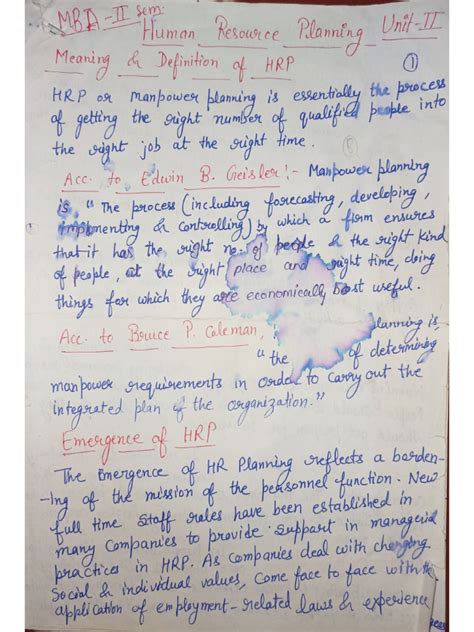 MBA - II sem:
Human Resource Planning Unit-II
Meaning & Definition of HRP
①
HRP or manpower planning is essentially the process
of getting the right number of qualified people into
the right job at the right time.
Acc. to Edwin B. Geisler:- Manpower planning
is, "The process (including forecasting, developing,
implementing & controlling) by which a firm ensures
that it has the right no. of people & the right kind
of people, at the right place and right time, doing
things for which they are economically most useful.
Acc. to Bruce P. Coleman, planning is,
"the of determining
manpower requirements in order to carry out the
integrated plan of the organization."
Emergence of HRP
The Emergence of HR Planning reflects a barden-
-ing of the mission of the personnel function. New
full time staff roles have been established in
many Companies to provide support in managerial
practices in HRP. As companies deal with changing
Social & individual values, Come face to face with the
application of employment-related laws & experience